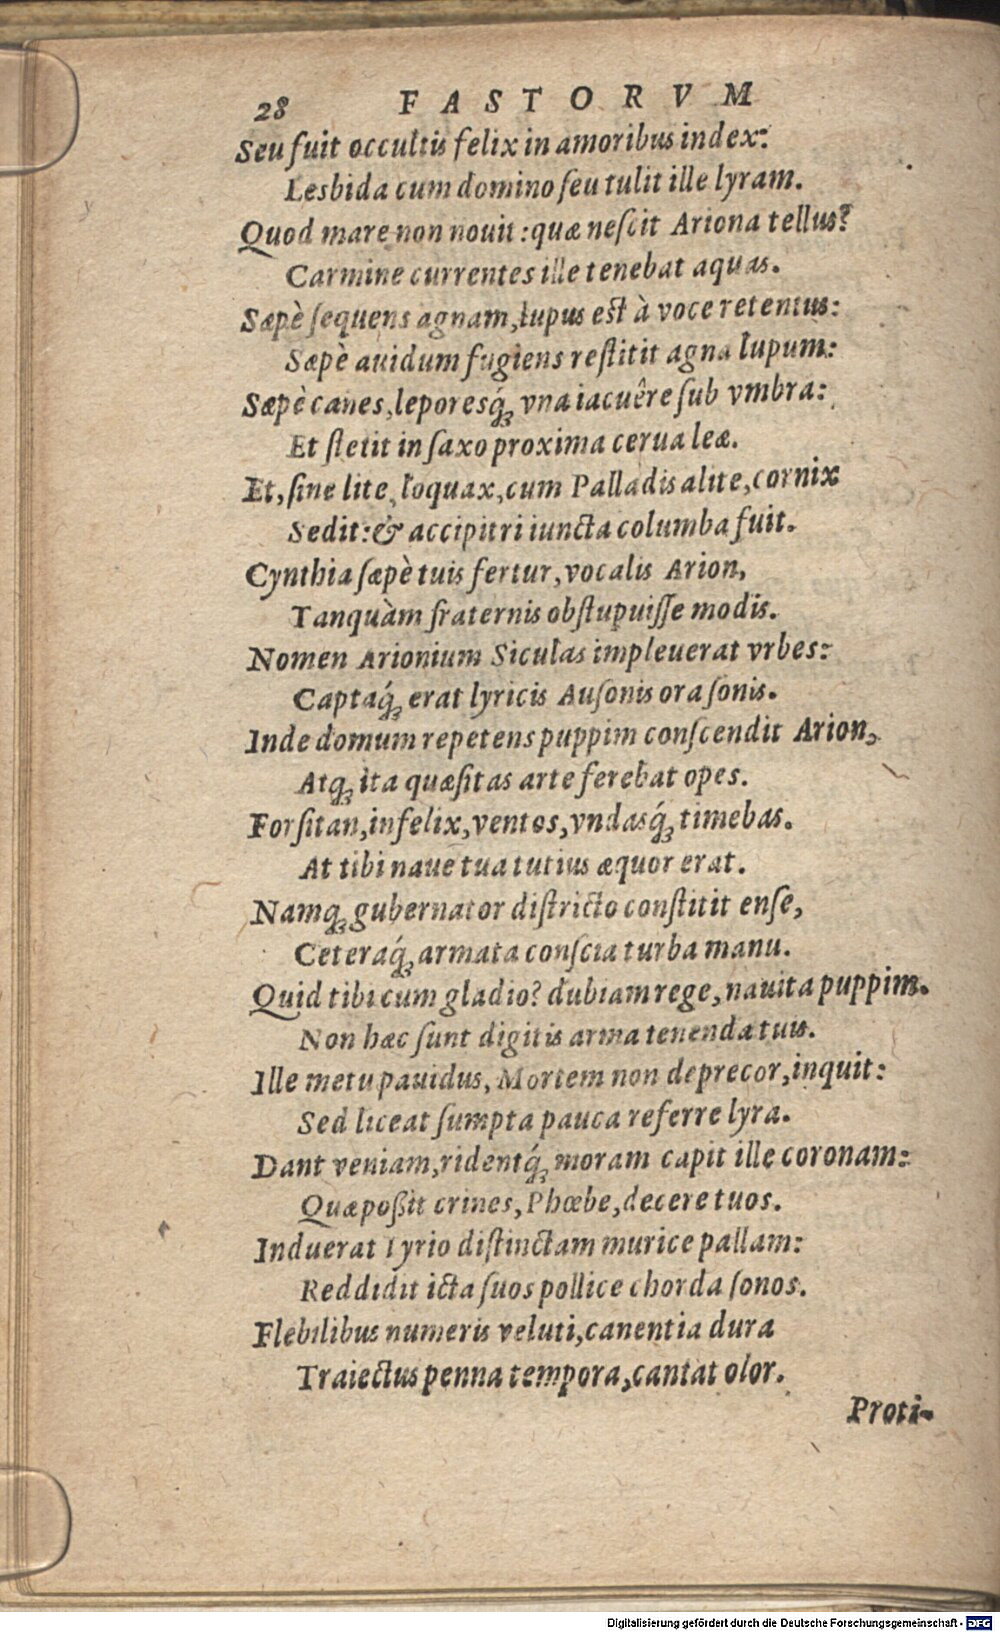 28 FASTORVM
Seu fuit occultis felix in amoribus index:
Lesbida cum domino ſeu tulit ille lyram.
Quod mare non nouit: quæ neſcit Ariona tellus?
Carmine currentes ille tenebat aquas.
Sæpè ſequens agnam, lupus eſt à voce retentus:
Sæpè auidum fugiens reſtitit agna lupum:
Sæpè canes, leporesq́; vna iacuêre ſub vmbra:
Et ſtetit in ſaxo proxima cerua leæ.
Et, ſine lite, loquax, cum Palladis alite, cornix
Sedit: & accipitri iuncta columba fuit.
Cynthia ſæpè tuis fertur, vocalis Arion,
Tanquàm fraternis obſtupuiſſe modis.
Nomen Arionium Siculas impleuerat vrbes:
Captaq́; erat lyricis Auſonis ora ſonis.
Inde domum repetens puppim conſcendit Arion,
Atq; ita quæſitas arte ferebat opes.
Forſitan, infelix, ventos, vndasq́; timebas.
At tibi naue tua tutius æquor erat.
Namq; gubernator diſtricto conſtitit enſe,
Ceteraq́; armata conſcia turba manu.
Quid tibi cum gladio? dubiam rege, nauita puppim.
Non hæc ſunt digitis arma tenenda tuis.
Ille metu pauidus, Mortem non deprecor, inquit:
Sed liceat ſumpta pauca referre lyra.
Dant veniam, ridentq́; moram capit ille coronam:
Quæ poßit crines, Phœbe, decere tuos.
Induerat Tyrio diſtinctam murice pallam:
Reddidit icta ſuos pollice chorda ſonos.
Flebilibus numeris veluti, canentia dura
Traiectus penna tempora, cantat olor.
Proti-
Digitalisierung gefördert durch die Deutsche Forschungsgemeinschaft - DFG